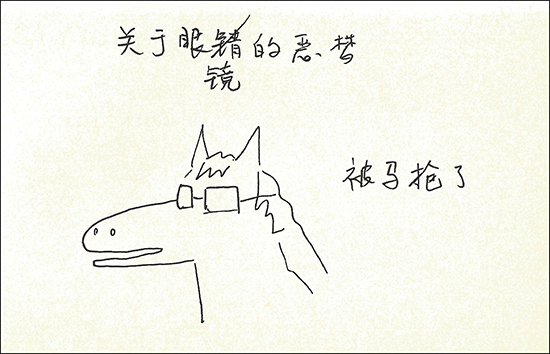 关于眼镜的恶梦
被马抢了